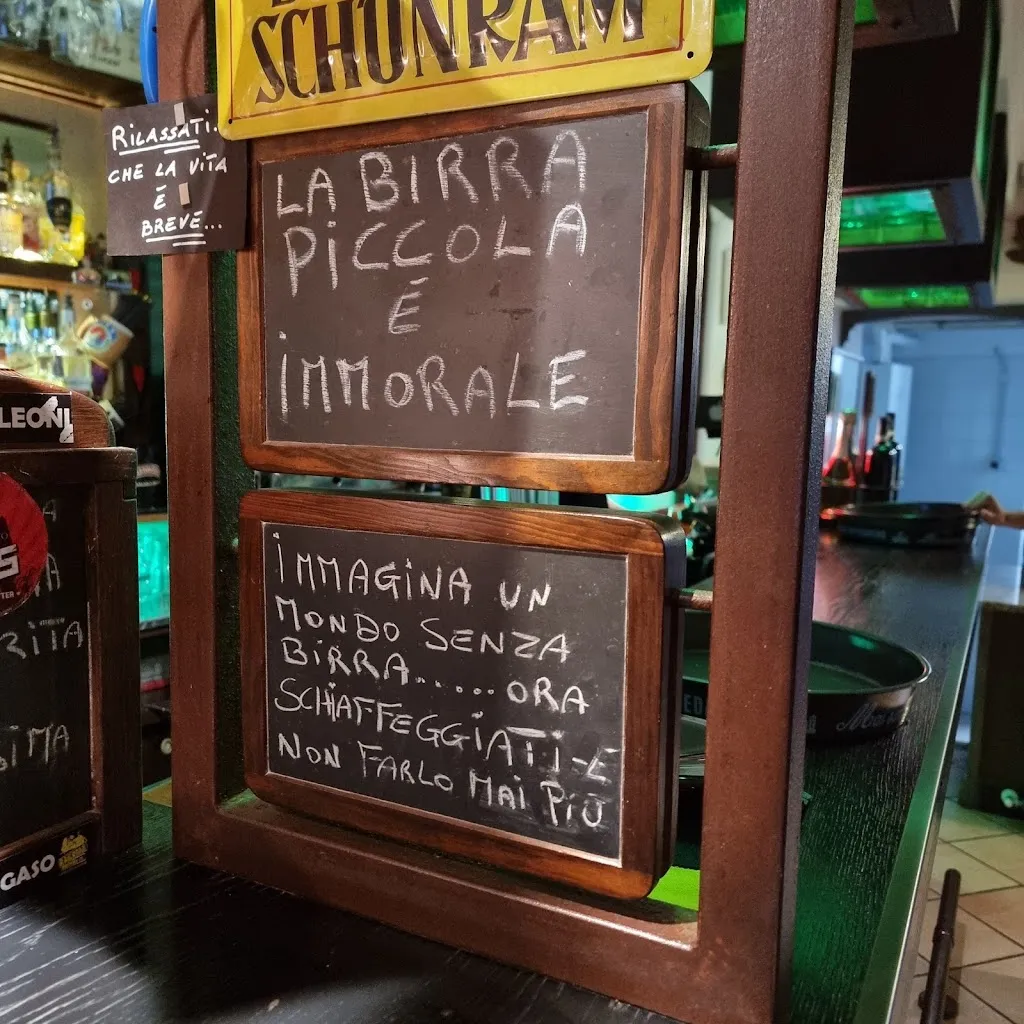 SCHÖNRAM
RILASSATI..
CHE LA VITA
È
BREVE...
LA BIRRA
PICCOLA
È
IMMORALE
IMMAGINA UN
MONDO SENZA
BIRRA.....ORA
SCHIAFFEGGIATI E
NON FARLO MAI PIÙ
LEONI
GASO